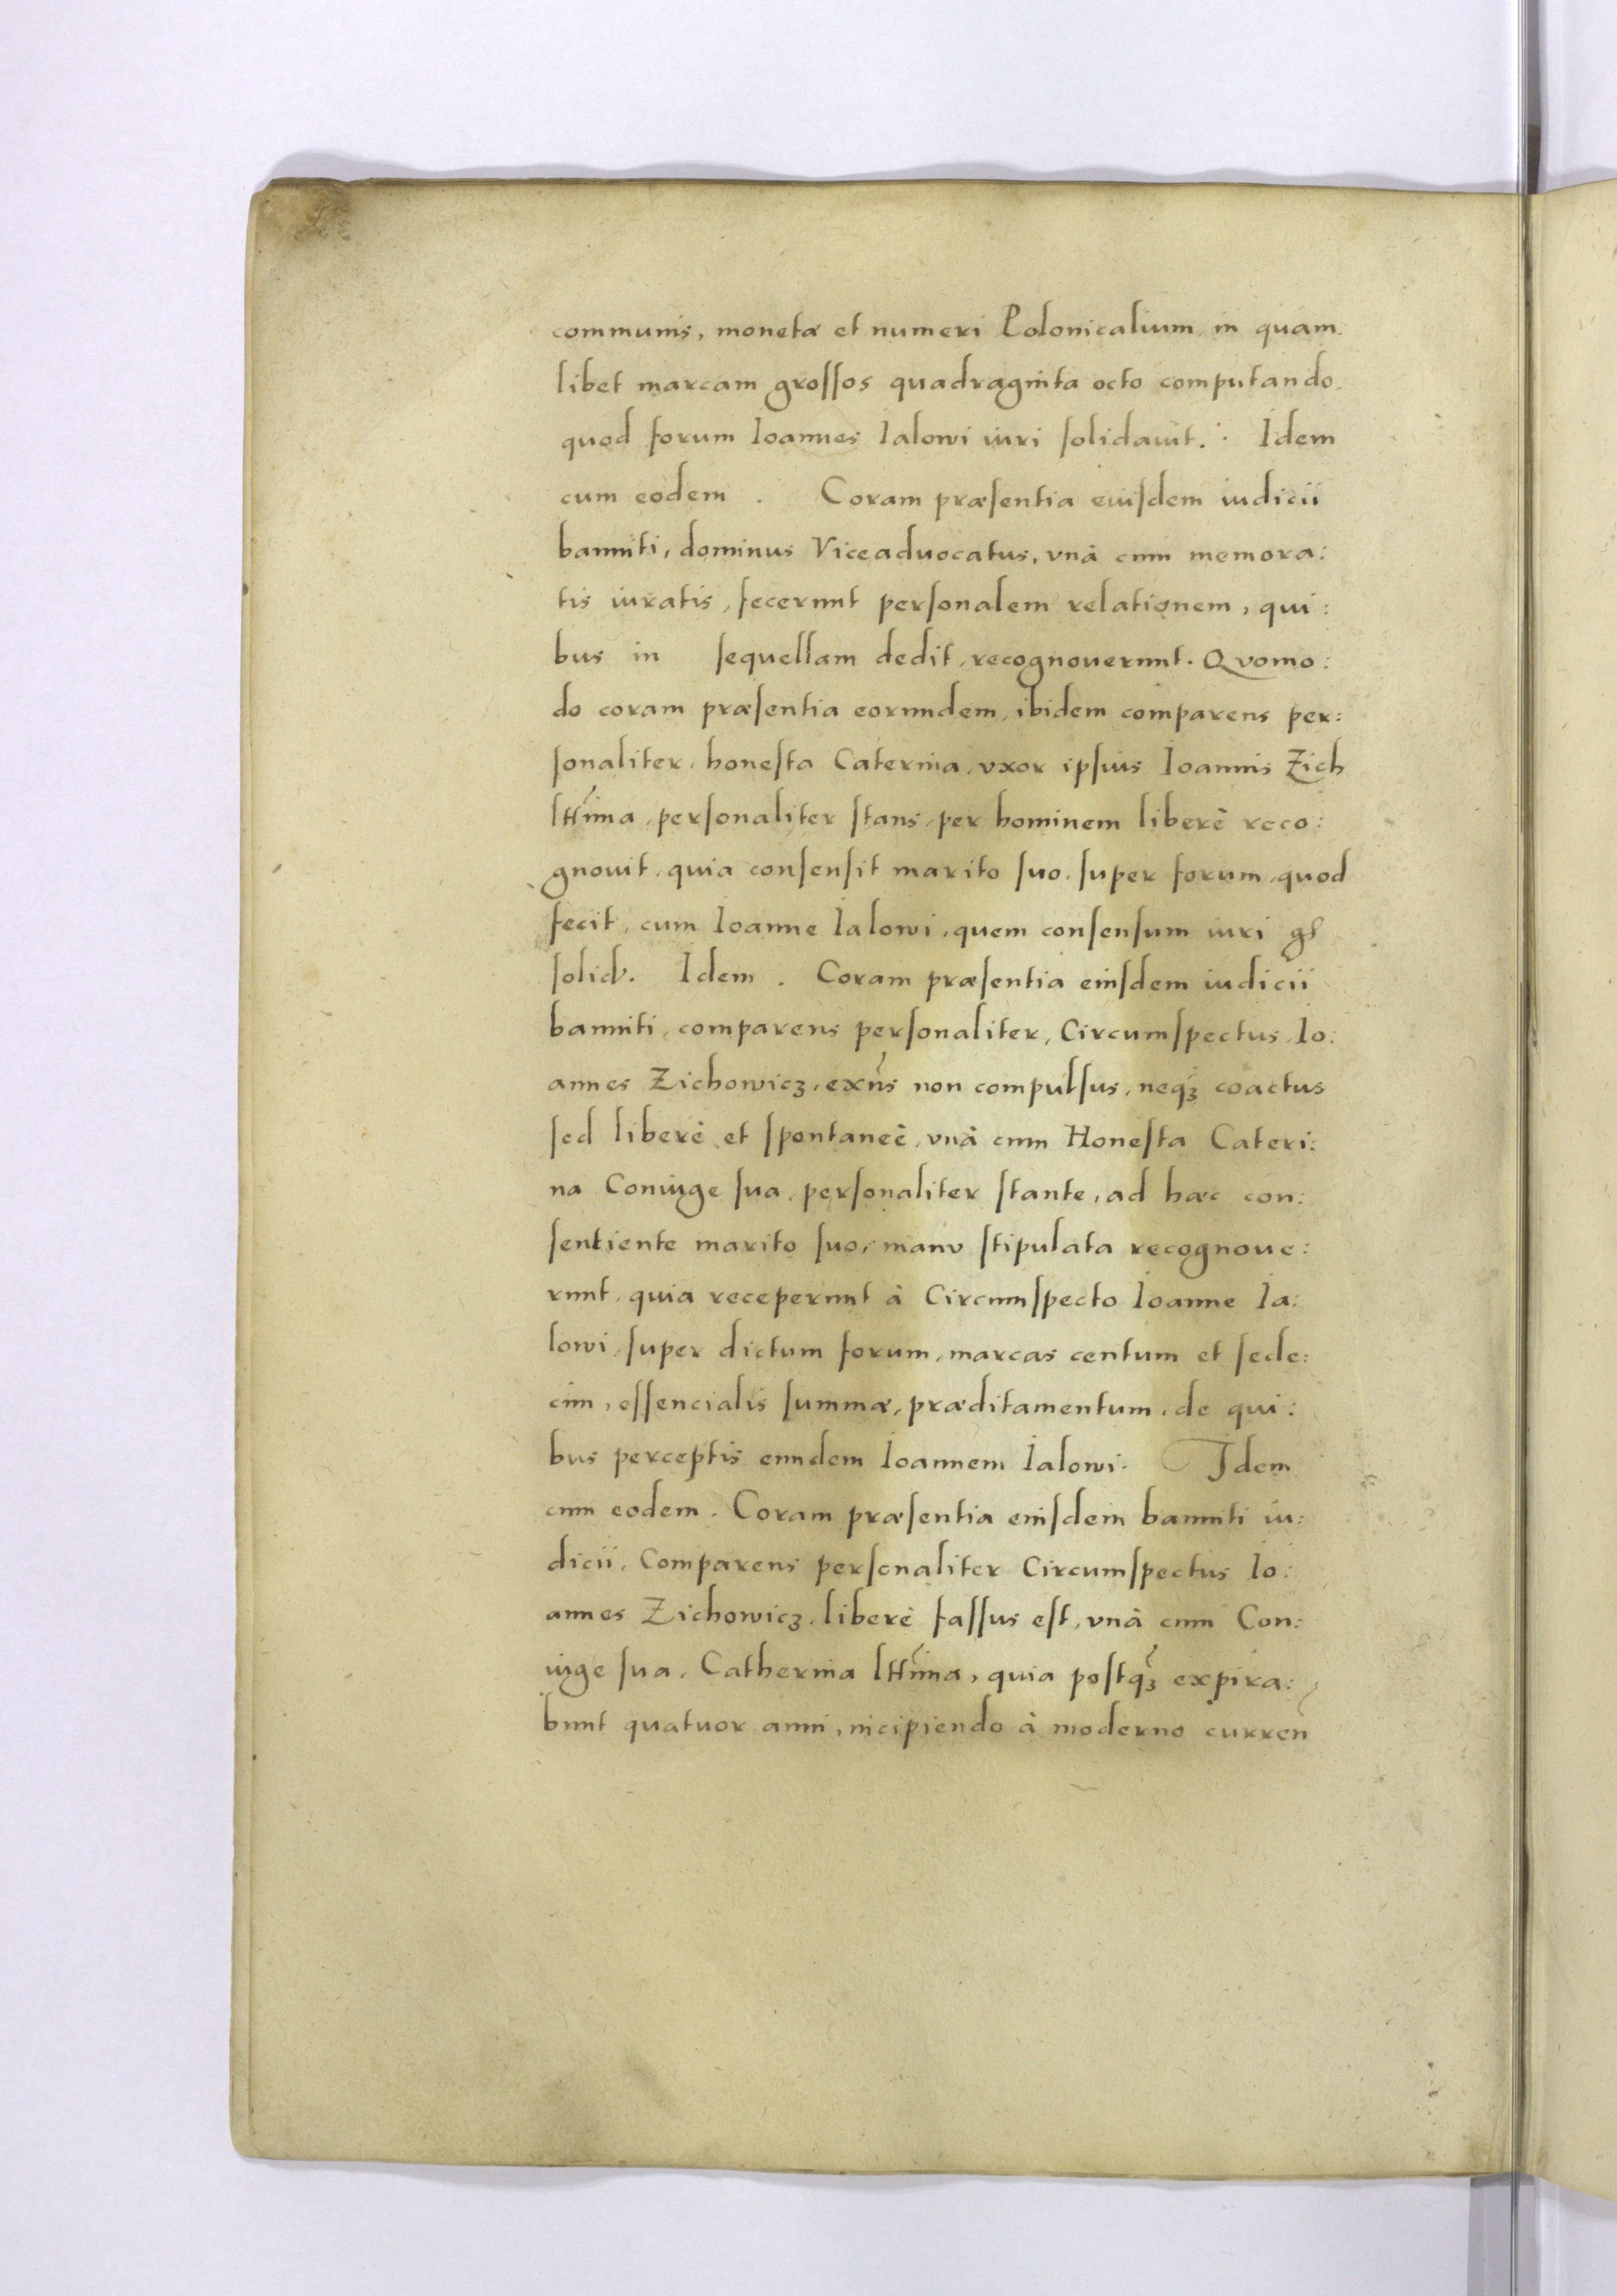 communis, monetæ et numeri Polonicalium in quam
libet marcam groſſos quadraginta octo computando.
quod forum Ioannes Ialowi iuri ſolidauit. Idem
cum eodem . Coram præſentia eiuſdem iudicii
banniti, dominus Viceaduocatus, vnà cum memora:
tis iuratis, fecerunt perſonalem relationem, qui:
bus in ſequellam dedit, recognouerunt. Qvomo:
do coram præſentia eorundem, ibidem comparens per:
ſonaliter, honeſta Caterina, vxor ipſius Ioannis Zich
lttima, perſonaliter ſtans, per hominem liberè reco:
gnouit, quia conſenſit marito ſuo, ſuper forum, quod
fecit, cum Ioanne Ialowi, quem conſenſum iuri
ſolid. Idem . Coram præſentia eiuſdem iudicii
banniti, comparens perſonaliter, Circumſpectus, Io:
annes Zichowicz, exns non compulſus, neqꝫ coactus
ſed liberè et ſpontaneè, vnà cum Honeſta Cateri:
na Coniuge ſua, perſonaliter ſtante, ad hæc con:
ſentiente marito ſuo, manv ſtipulata recognoue:
runt, quia receperunt à Circumſpecto Ioanne Ia:
lowi, ſuper dictum forum, marcas centum et ſede:
cim, eſſencialis ſummæ, præditamentum, de qui:
bus perceptis eundem Ioannem Ialowi. Idem
cum eodem. Coram præſentia eiuſdem banniti iu:
dicii, Comparens perſonaliter Circumſpectus Io:
annes Zichowicz, liberè faſſus eſt, vnà cum Con:
iuge ſua, Catherina lttima, quia poſtqꝫ expira:
bunt quatuor anni, incipiendo à moderno curren